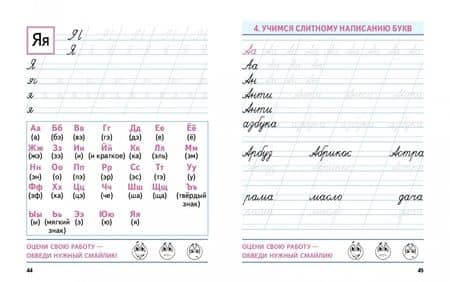 Яя Я Я
Я
Я
я
я
я
Аа Бб Вв Гг Дд Ее Ёё
(а) (бэ) (вэ) (гэ) (дэ) (е) (ё)
Жж Зз Ии Йй Кк Лл Мм
(жэ) (зэ) (и) (и краткое) (ка) (эль) (эм)
Нн Оо Пп Рр Сс Тт Уу
(эн) (о) (пэ) (эр) (эс) (тэ) (у)
Фф Хх Цц Чч Шш Щщ Ъъ
(эф) (ха) (цэ) (че) (ша) (ща) (твёрдый знак)
Ыы Ьь Ээ Юю Яя
(ы) (мягкий знак) (э) (ю) (я)
ОЦЕНИ СВОЮ РАБОТУ —
ОБВЕДИ НУЖНЫЙ СМАЙЛИК!
44
4. УЧИМСЯ СЛИТНОМУ НАПИСАНИЮ БУКВ
Аа
Аа
Ан
Анти
Анти
азбука
Арбуз Абрикос Астра
рама масло дача
ОЦЕНИ СВОЮ РАБОТУ —
ОБВЕДИ НУЖНЫЙ СМАЙЛИК!
45